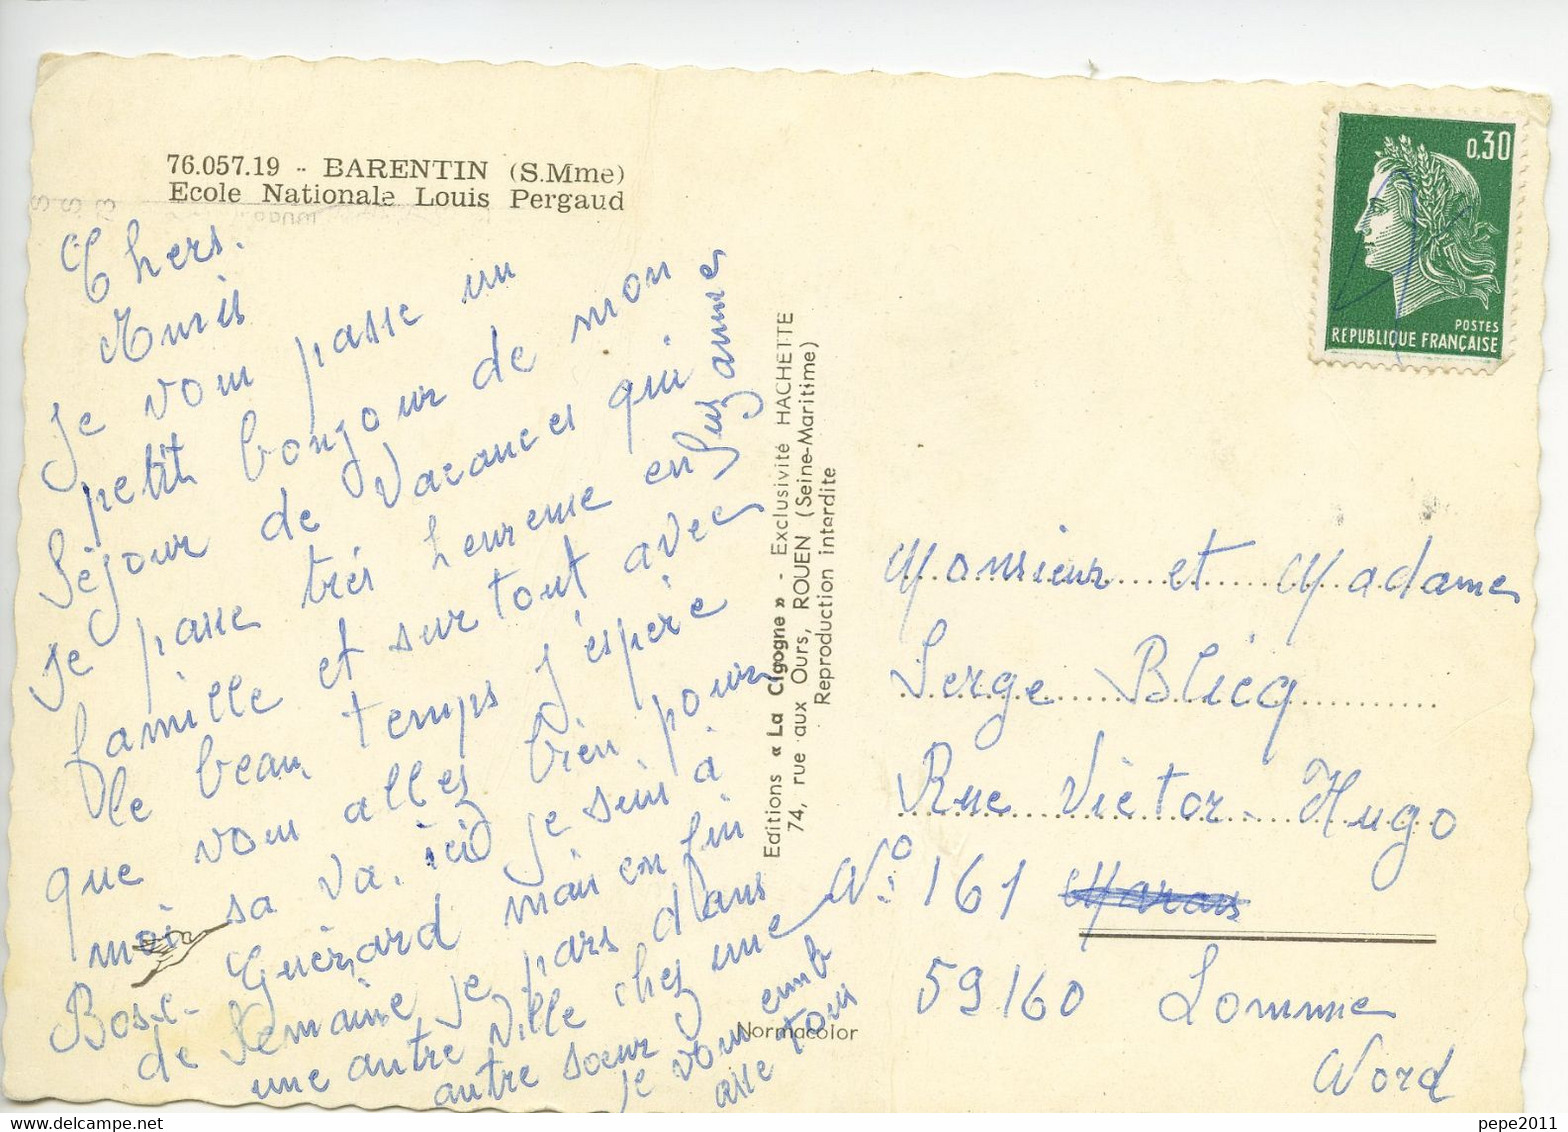 76.057.19 - BARENTIN (S.Mme)
Ecole Nationale Louis Pergaud
Chers.
Amis
Je vous passe un
petit bonjour de mon
Séjour de Vacances qui
je passe très heureuse en
famille et surtout avec
le beau temps j'espère
que vous allez bien pour
moi sa va. ici je suis à
Bosc-Guérard mais en fin
de Semaine je pars dans
une autre ville chez une
autre sœur
je vous emb
asse tous
Suzanne
Editions « La Cigogne » - Exclusivité HACHETTE
74, rue aux Ours, ROUEN (Seine-Maritime)
Reproduction interdite
Normacolor
0,30
POSTES
REPUBLIQUE FRANÇAISE
Monsieur et Madame
Serge Blicq
Rue Victor Hugo
N° 161 Marais
59160 Lomme
Nord
pepe2011